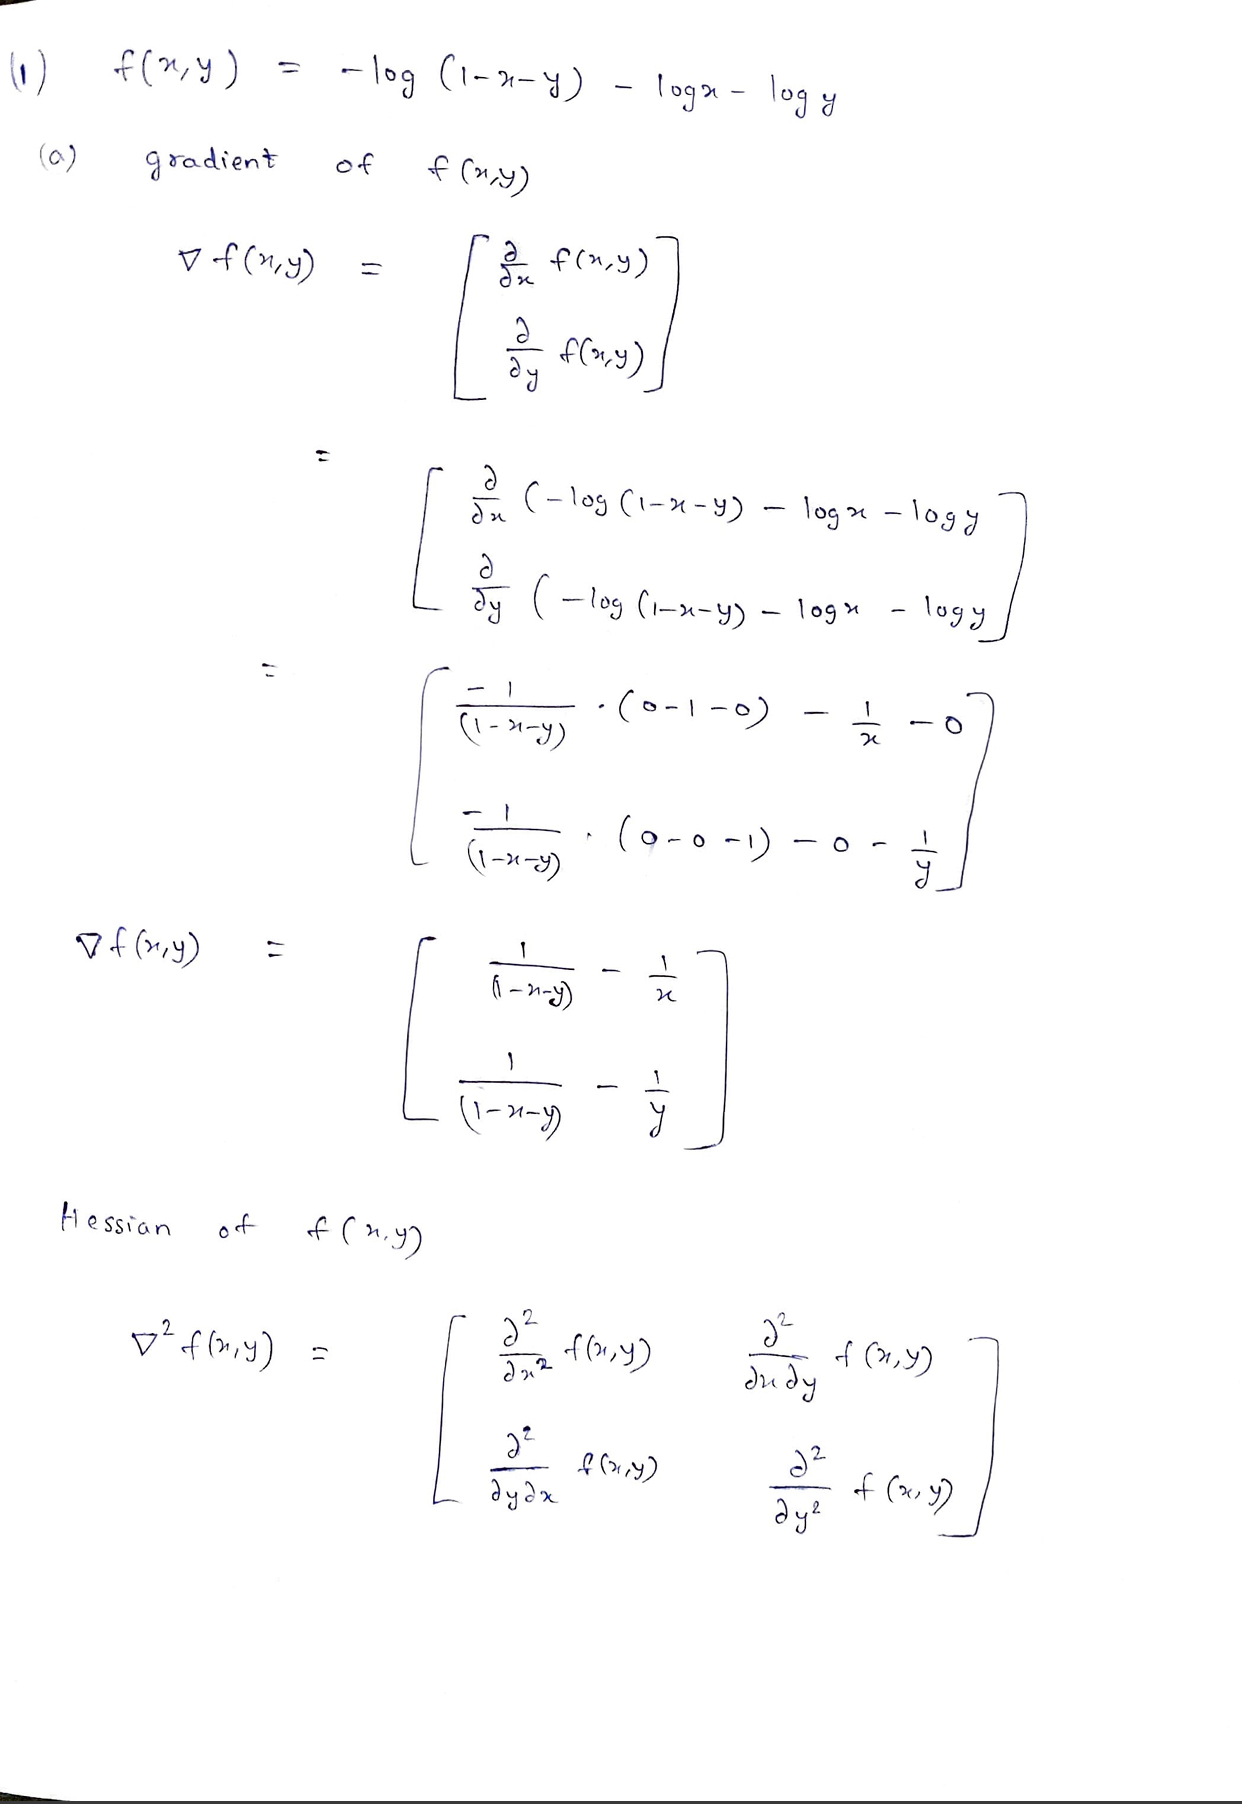 (1) f(x,y) = -log (1-x-y) - logx - log y
(a) gradient of f(x,y)
∇f(x,y) = [ ∂/∂x f(x,y)
∂/∂y f(x,y) ]
= [ ∂/∂x (-log (1-x-y) - logx - logy
∂/∂y ( -log (1-x-y) - logx - logy ]
= [ -1/(1-x-y) · (0-1-0) - 1/x - 0
-1/(1-x-y) · (0-0-1) - 0 - 1/y ]
∇f(x,y) = [ 1/(1-x-y) - 1/x
1/(1-x-y) - 1/y ]
Hessian of f(x,y)
∇²f(x,y) = [ ∂²/∂x² f(x,y) ∂²/∂x∂y f(x,y)
∂²/∂y∂x f(x,y) ∂²/∂y² f(x,y) ]